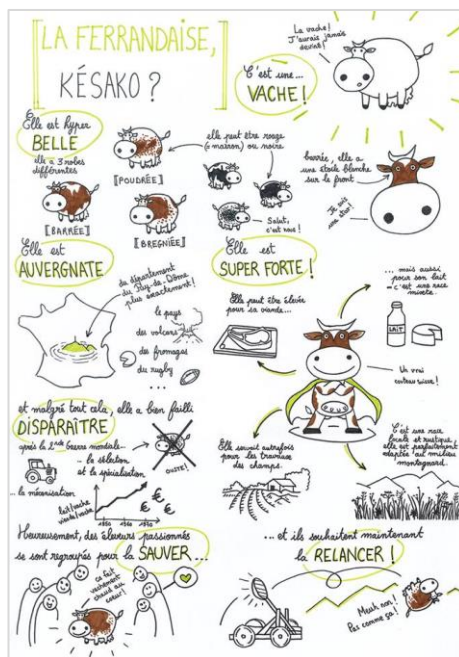 LA FERRANDAISE,
KÉSAKO ?
La vache !
J'aurais jamais
deviné !
C'est une...
VACHE !
Elle est hyper
BELLE
elle a 3 robes
différentes
[POUDRÉE]
[BARRÉE]
[BREGNIÉE]
elle peut être rouge
(= marron) ou noire
Salut,
c'est nous !
barrée, elle a
une étoile blanche
sur le front
Je suis
une star !
Elle est
AUVERGNATE
du département
du Puy-de-Dôme
plus exactement !
le pays
des volcans
des fromages
du rugby
...
Elle est
SUPER FORTE !
Elle peut être élevée
pour sa viande...
... mais aussi
pour son lait
c'est une race
mixte.
LAIT
Un vrai
couteau suisse !
Elle servait autrefois
pour les travaux
des champs.
C'est une race
locale et rustique,
elle est parfaitement
adaptée au milieu
montagnard.
et malgré tout cela, elle a bien failli
DISPARAÎTRE
après la 2nde Guerre mondiale...
... la sélection
et la spécialisation
OUSTE !
... la mécanisation
lait/vache
viande/vache
1950
€ € €
Heureusement, des éleveurs passionnés
se sont regroupés pour la SAUVER...
ça fait
vachement
chaud au
cœur !
... et ils souhaitent maintenant
la RELANCER !
Meuh non !
Pas comme ça !